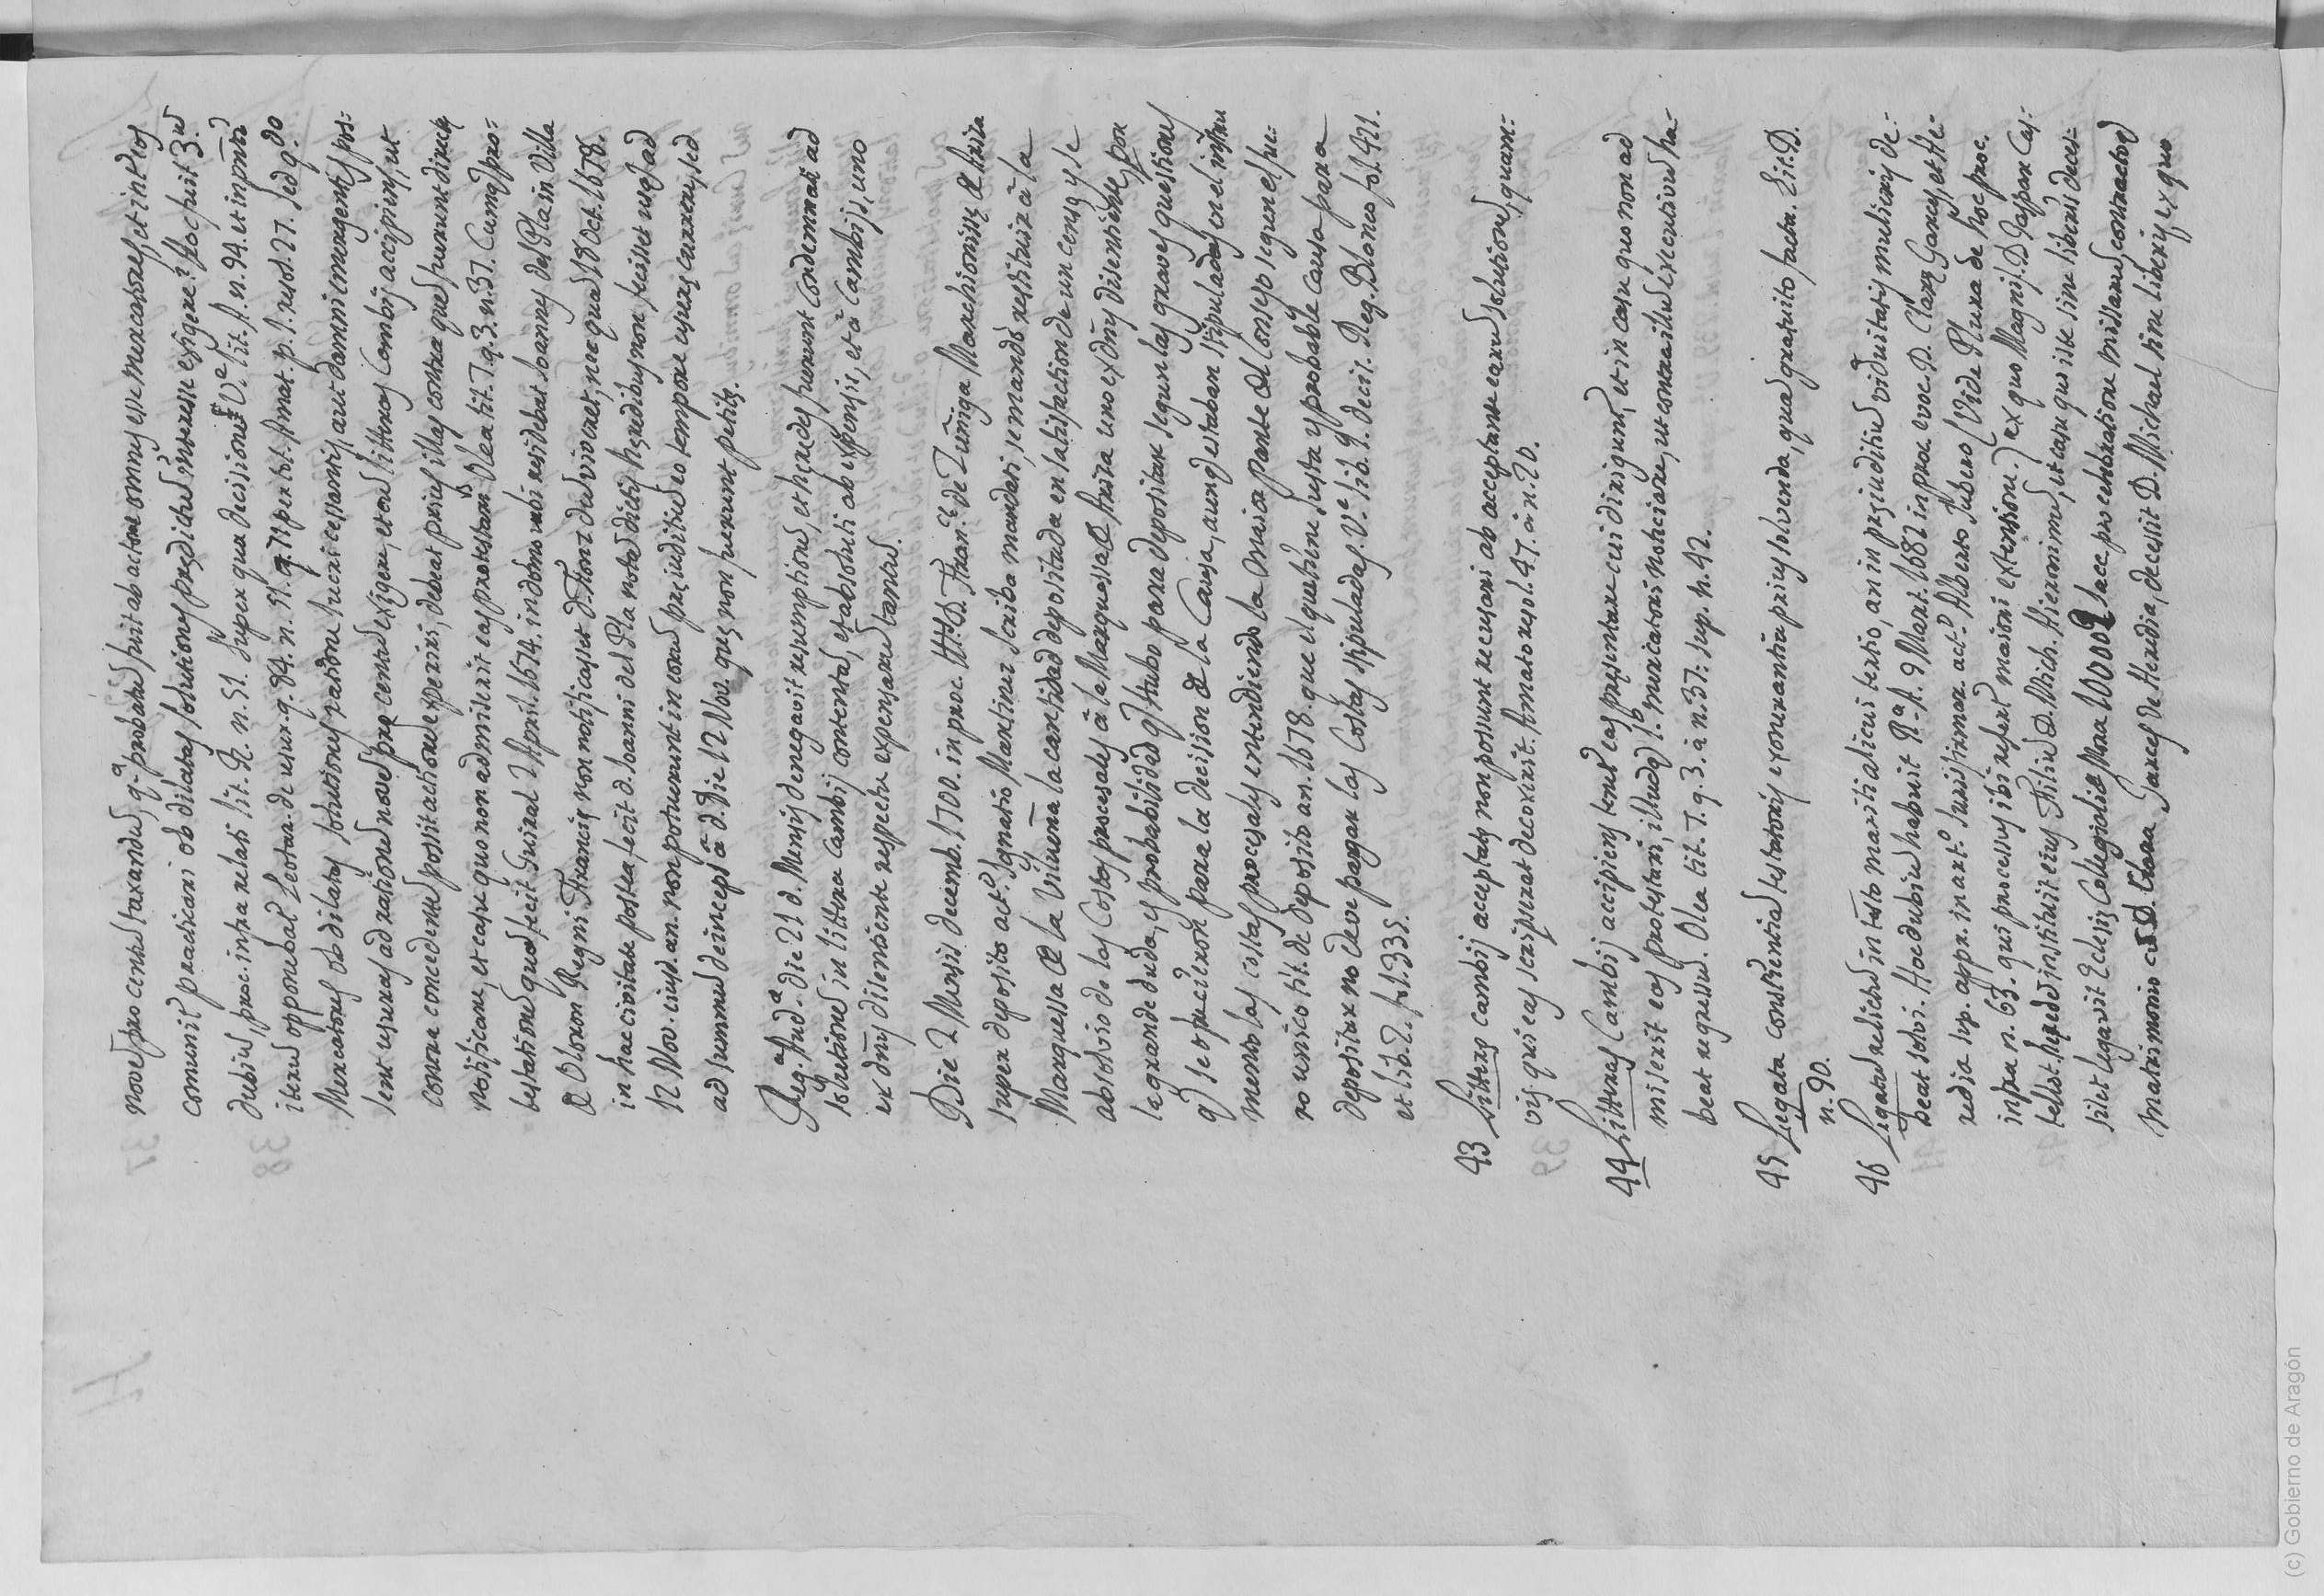 novē pro centū taxandū, qª. probatū fuit ab actore omnes esse mercatores, et int̄ eos
comuniť practicari ob dilatas solutiones prędictū interesse exigere? Hoc fuit 3.ū
dubiū, proc. infra relati lit. R. n. 51. Super qua decisione Vª. lit. A. n. 94. et in
iterū opponebat Leotar. de usur. q. 84. n. 11. q. 77 per tot. Amat. p. 1. resol. 27. Sed qdo.
Mercatores ob dilatas solutiones ratione lucri cessantis, aut damni emergentis pos:
sent usuras ad rationē novē pro centū exigere, et an litteras Cambij accipiens, ut
contra concedentē possit actione experiri, debeat prius illas contra quē fuerunt directę
notificare, et casu quo non admiserit eas protestari. Olea tit. 7. q. 3. n. 37. Cumq̄ pro:
testationē quā fecit Guiral 2 April. 1674. in domo ubi residebat Joannes del Pla in Villa
de Oloron Regni Francię non notificasset d. Front dum viveret, nec quā 18 Oct. 1678.
in hac civitate postea fecit d. Joanni del Pla notā dictis hęredibus non fecisset usq̄ ad
12 Nov. eiusd. an. non potuerunt in eorū pręiuditiū eo tempore usurę currere, sed
ad summū deinceps ā d. die 12 Nov. quę non fuerunt petitę.
Reg.ª Aud.ª die 21 d. Mensis denegavit resumptionē, et hęredes fuerunt condemnati ad
solutionē in littera Cambij contentā, et absoluti ab expensis, et ā Cambijs, uno
ex dn̄is disentiente respectu expensarū tantū.
Die 2 Mensis decemb. 1700. in proc. Ill. D. Fran.cę de Zuñiga Marchionissę de Ariza
super deposito act.o Ignatio Martinez Scriba mandati, se mandò restituir ā la
Marquessa de la Vilueña la cantidad depositada en satisfaction de un censo, y se
absolvio de las Costas procesales ā la Marquessa de Ariza uno ex dn̄is disentiente, por
la grande duda, y probabilidad q̄ Hubo para depositar segun las graves questiones
q̄ se ofrecieron para la decision de la Causa, aunq̄ estaban stipuladas en el instru
mento las costas procesales, entendiendo la maior parte del Consejo se guen esfue:
ro unico tit. de deposito an. 1678. que el que tiene Justa y probable causa para
depositar no deve pagar las Costas stipuladas. Vª lib. 1. decis. Reg. Blanco fol. 421.
et lib. 2. fol. 335.
43 Litterę cambij acceptatę non possunt recusari ab acceptante earū solutione, quam:
vis qui eas scripserat decoxerit. Amato resol. 47. ā n. 20.
44 Litteras Cambij accipiens tenē eas pręsentare cui dirigunt, et in casu quo non ad
miserit eas protestari, illudq̄ 1.o mercatori notificare, ut contra illū executivū ha-
beat regressū. Olea tit. 7. q. 3. ā n. 37. sup. n. 42.
45 Legata conscientiā testatoris exonerantia prius solvenda, quā gratuito facta. Lit. D.
n. 90.
46 Legatū relictū in t̄to mariti alicui tertio, an in pręiuditiū viduitatis mulieris de:
beat solvi. Hoc dubiū habuit Rª. Aª. 9 Mart. 1682 in proc. voc. D. Clarę Garces, et He-
redia sup. appr. in art.o Jurisfirmar. act.o Alberto Jubero (Vide Plura de hoc proc.
infra n. 63. qui processus ibi refert maiori extensione.) ex quo Magnif. D. Gaspar Cas:
tellot hęredē instituit eius Filiū D. Mich. Hieronimū, et casu quo iste sine liberis deces-
sisset legavit Eclesię Collegiali de Mora 10000 ₤ Jacc. pro celebratione missarū, contractoq̄
matrimonio cū D. Clara Garces de Heredia, decessit D. Michael sine liberis, ex quo